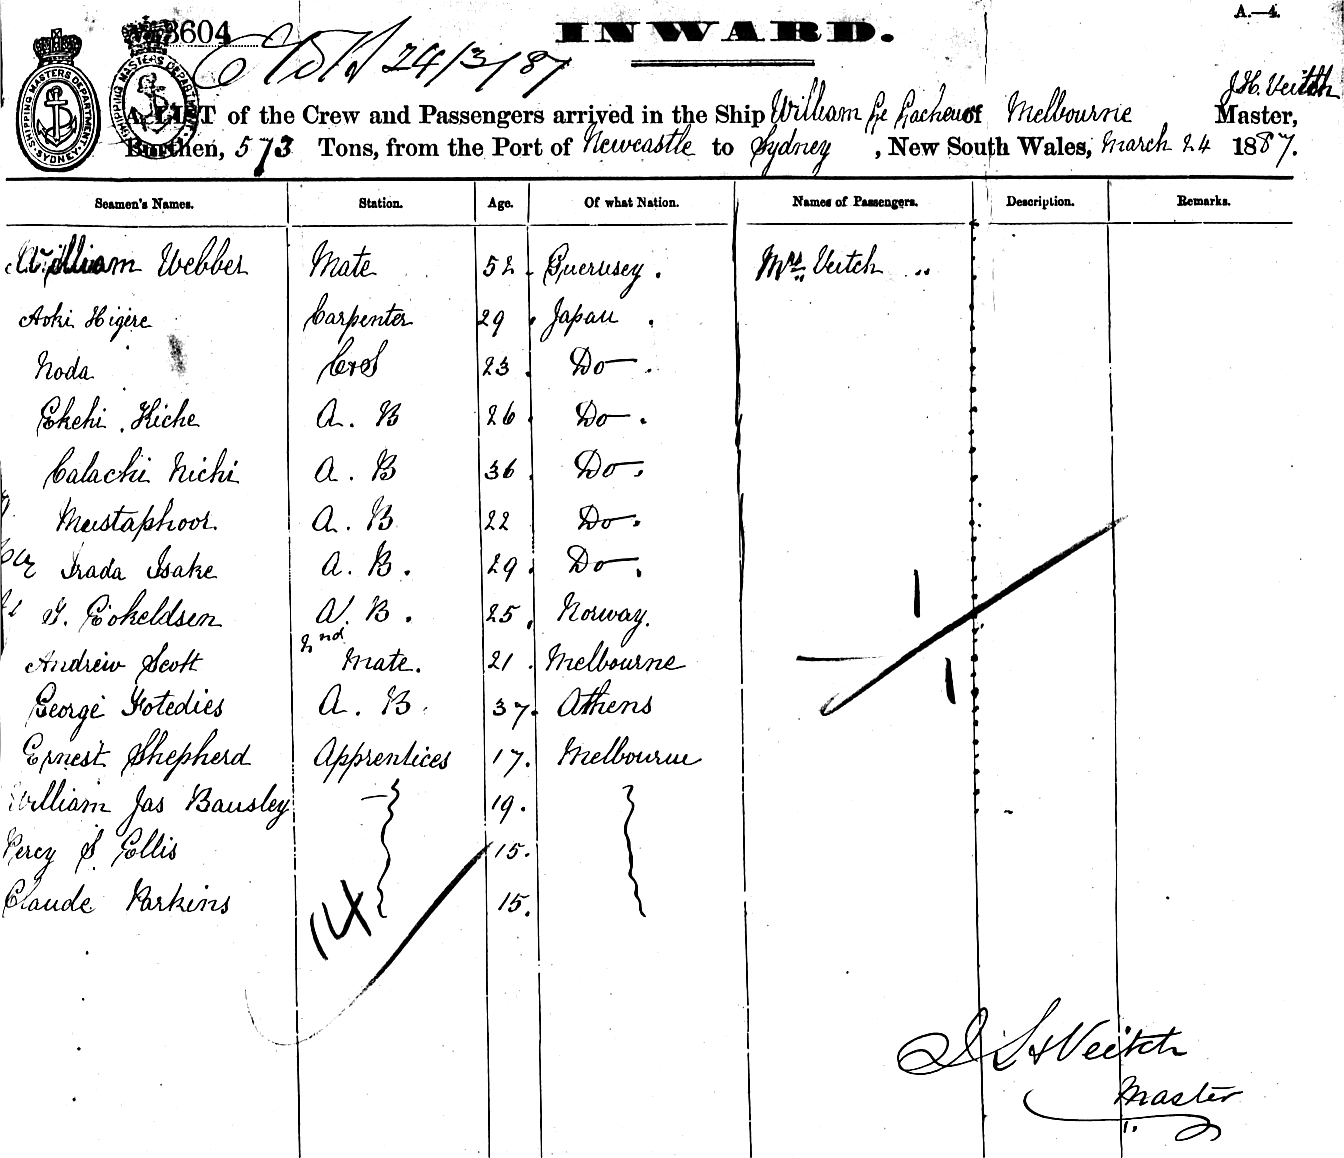 A.—4.
3604
INWARD.
24/3/87
J. H. Veitch
A LIST of the Crew and Passengers arrived in the Ship William Le Lacheur of Melbourne Master,
Burthen, 573 Tons, from the Port of Newcastle to Sydney, New South Wales, March 24 1887.
SHIPPING MASTERS DEPARTMENT. SYDNEY
SHIPPING MASTERS DEPARTMENT.
Seamen's Names. Station. Age. Of what Nation. Names of Passengers. Description. Remarks.
William Webber Mate 52 Guernsey. Mrs Veitch
Aoki Higere Carpenter 29 Japan.
Noda C&S 23 Do—.
Ekehi Kiche A. B 26 Do—.
Calachi Nichi A. B 36 Do—.
Mustaphoor. A. B 22 Do—.
Irada Isake A. B. 29 Do—.
G. Eokeldsen A. B. 25 Norway.
Andrew Scott 2nd Mate. 21 Melbourne
George Fotedies A. B. 37 Athens
Ernest Shepherd Apprentices 17. Melbourne
William Jas Bausley 19.
Percy S. Ellis 15.
Claude Parkins 15.
14
1
1
J H Veitch
Master